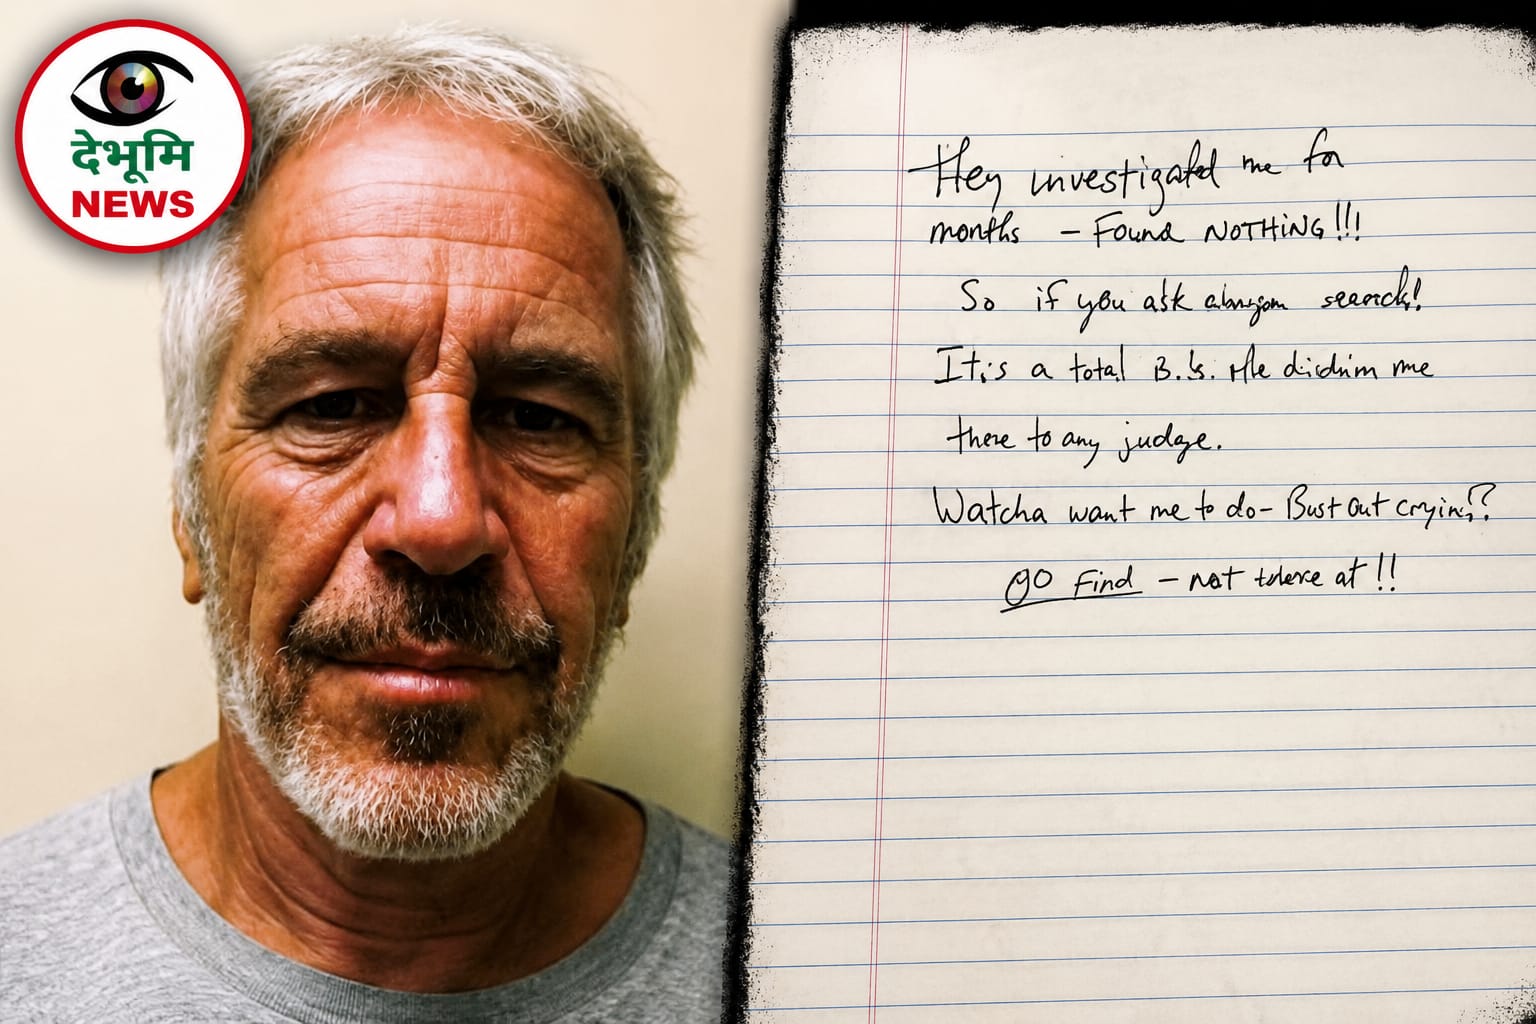 देभूमि
NEWS
Hey investigated me for
months – Found NOTHING!!!
So if you ask search!
It's a total B.S. me
there to any judge.
Watcha want me to do– Bust out crying??
GO Find – not at!!